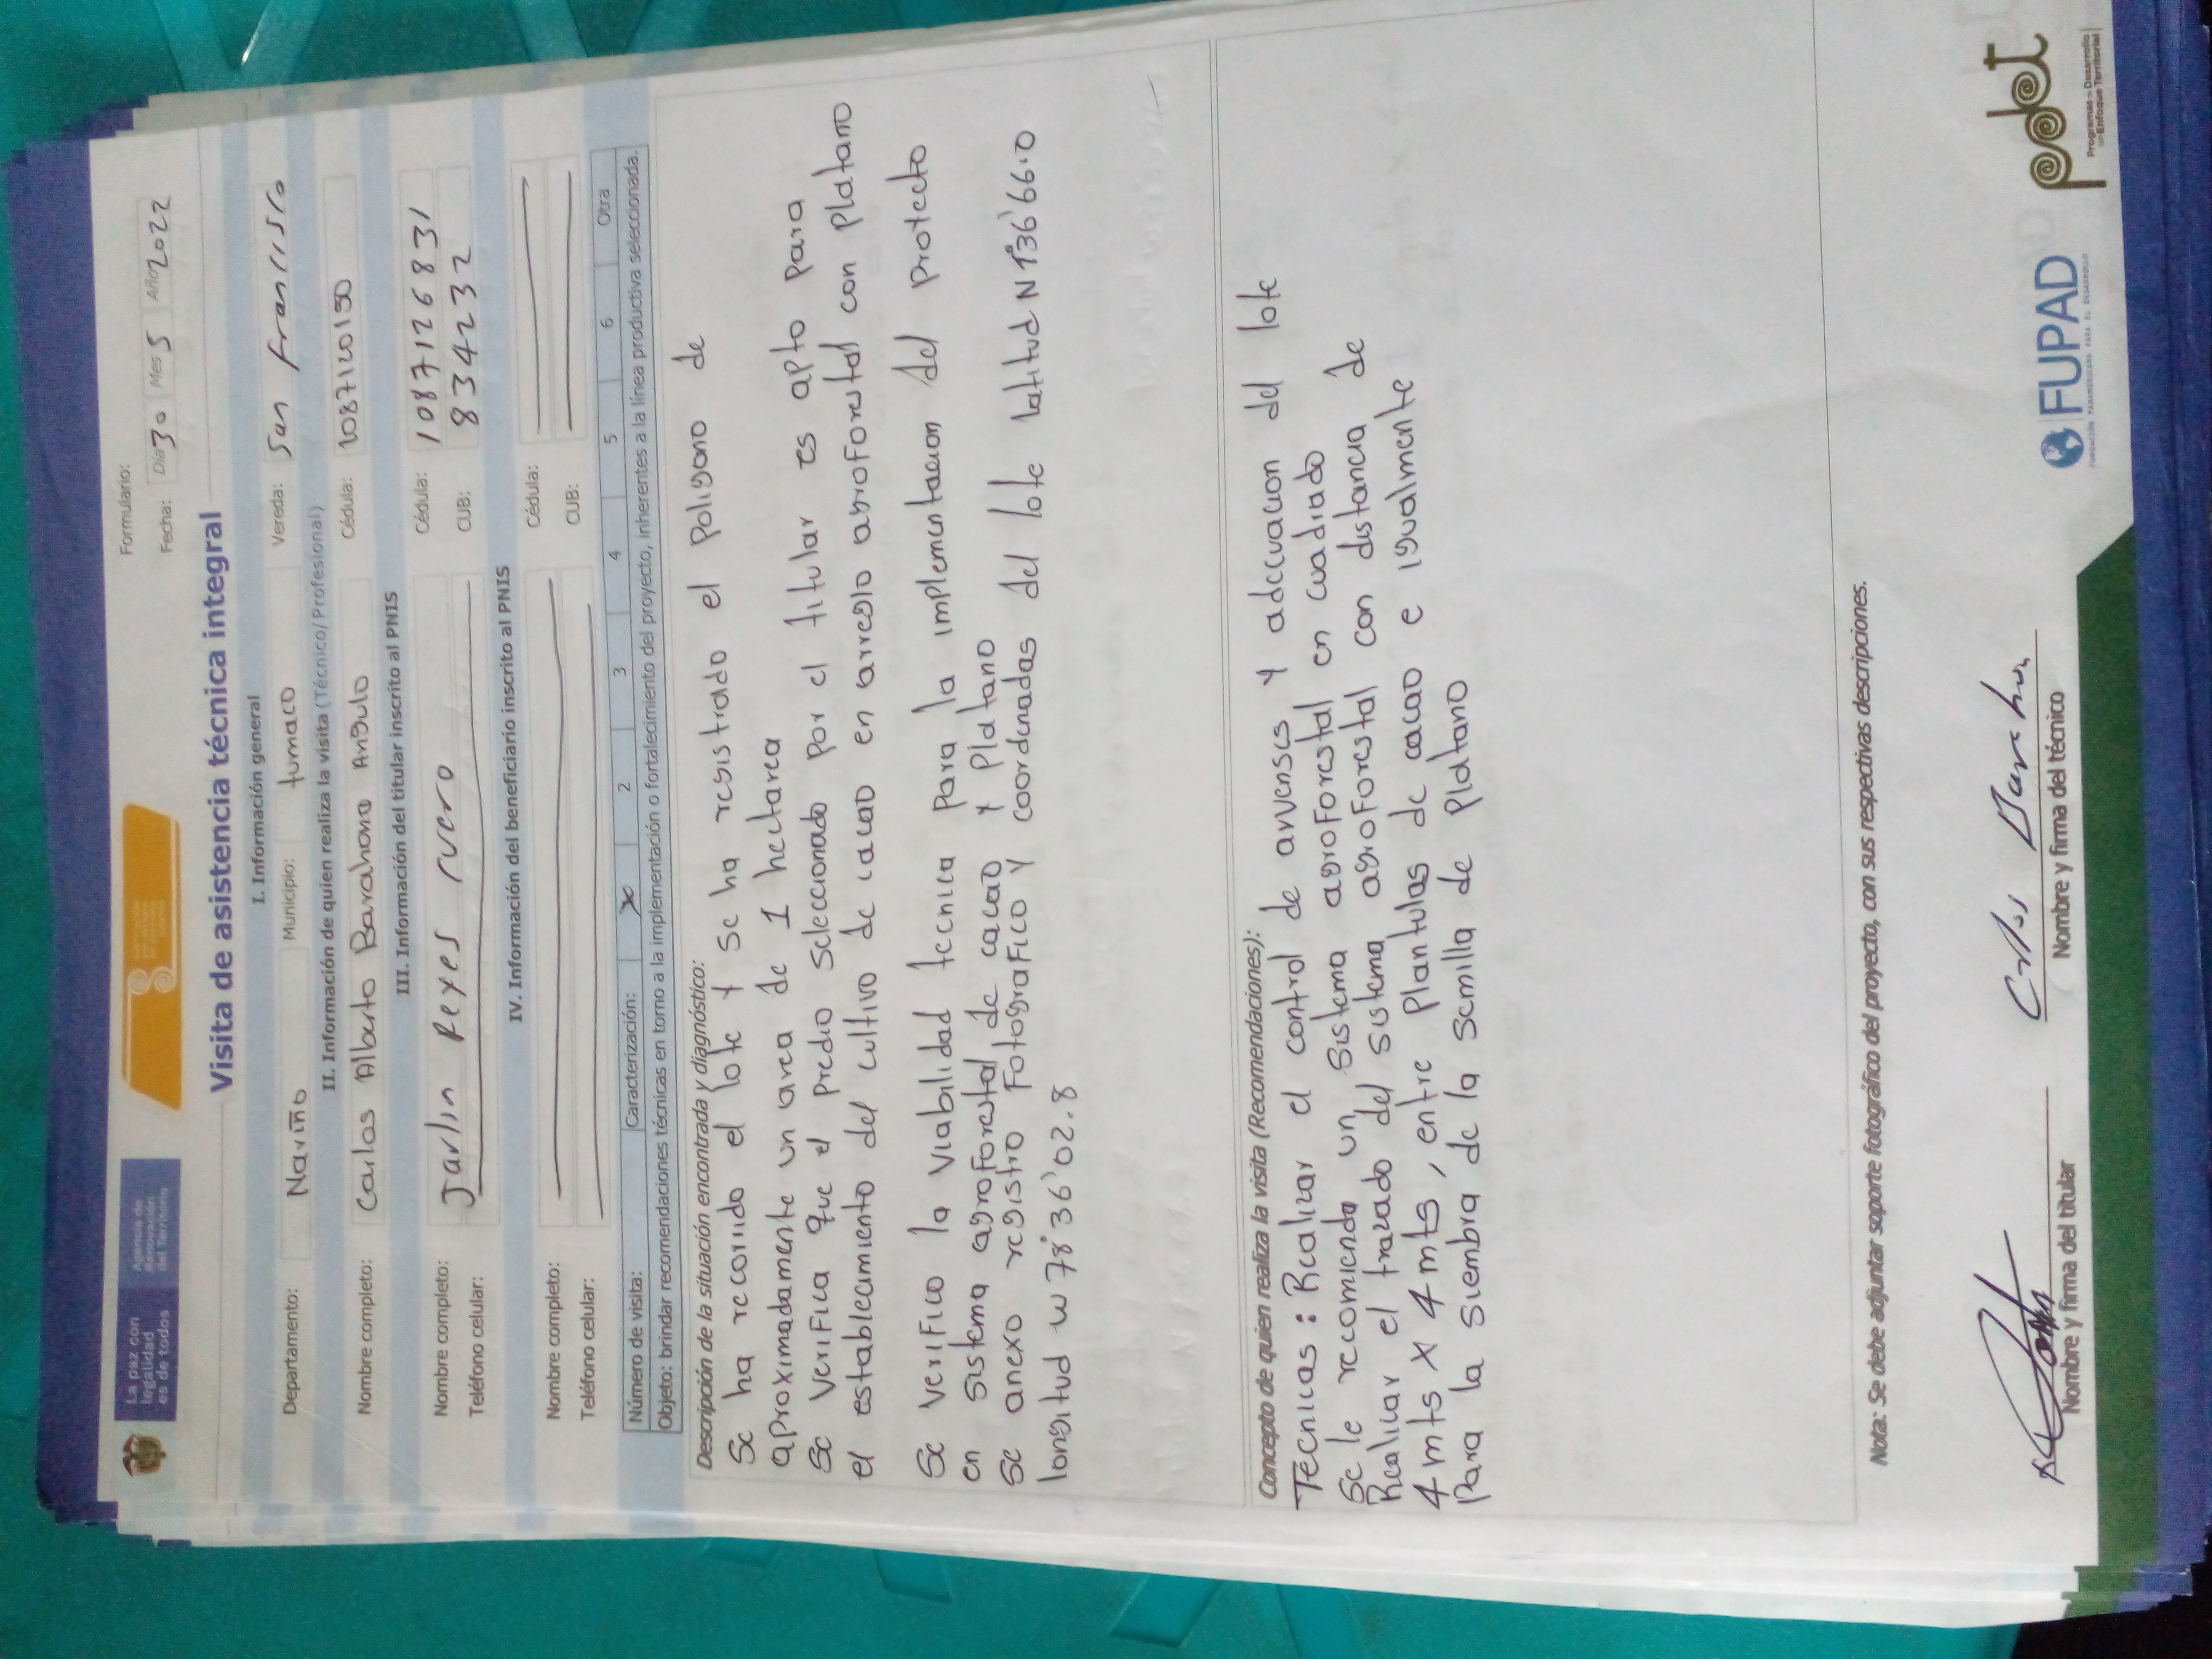 La paz con
legalidad
es de todos
Agencia de
Renovación
del Territorio
Formulario:
Fecha: Día 30 Mes 5 Año 2022
Visita de asistencia técnica integral
I. Información general
Departamento: Nariño Municipio: tumaco Vereda: San francisco
II. Información de quien realiza la visita (Técnico/Profesional)
Nombre completo: Carlos Alberto Barahona Angulo Cédula: 1087120150
III. Información del titular inscrito al PNIS
Nombre completo: Jarlin Reyes rvero Cédula: 1087126831
Teléfono celular: CUB: 834232
IV. Información del beneficiario inscrito al PNIS
Nombre completo: Cédula:
Teléfono celular: CUB:
Número de visita: Caracterización: X 2 3 4 5 6 Otra
Objeto: brindar recomendaciones técnicas en torno a la implementación o fortalecimiento del proyecto, inherentes a la línea productiva seleccionada.
Descripción de la situación encontrada y diagnóstico:
Se ha recorrido el lote y se ha registrado el Poligono de
aproximadamente un area de 1 hectarea
Se verifica que el predio seleccionado por el titular es apto para
el establecimiento del cultivo de cacao en arreglo agroforestal con Platano
Se verifico la viabilidad tecnica para la implementacion del Protecto
en sistema agroforestal de cacao y Platano
Se anexo registro Fotografico y coordenadas del lote latitud N 1°36'66.0
longitud w 78°36'02.8
Concepto de quien realiza la visita (Recomendaciones):
Técnicas: Realizar el control de arvenses y adecuacion del lote
Se le recomienda un sistema agroforestal en cuadrado
Realizar el trazado del sistema agroforestal con distancia de
4 mts x 4 mts, entre Plantulas de cacao e igualmente
Para la siembra de la semilla de Platano
Nota: Se debe adjuntar soporte fotográfico del proyecto, con sus respectivas descripciones.
Nombre y firma del titular
Nombre y firma del técnico
FUPAD
FUNDACIÓN PANAMERICANA PARA EL DESARROLLO
pdet
Programas de Desarrollo
con Enfoque Territorial